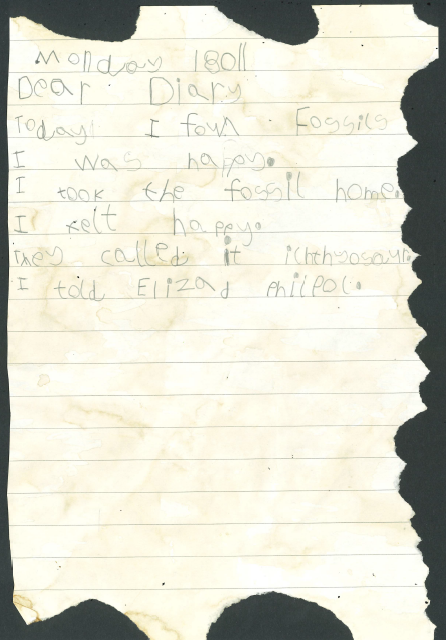 Monday 1801
Dear Diary
Today I foun Fossils
I was happy.
I took the fossil home.
I felt happy.
They called it ichthyosaur.
I told Elizad Philpot.